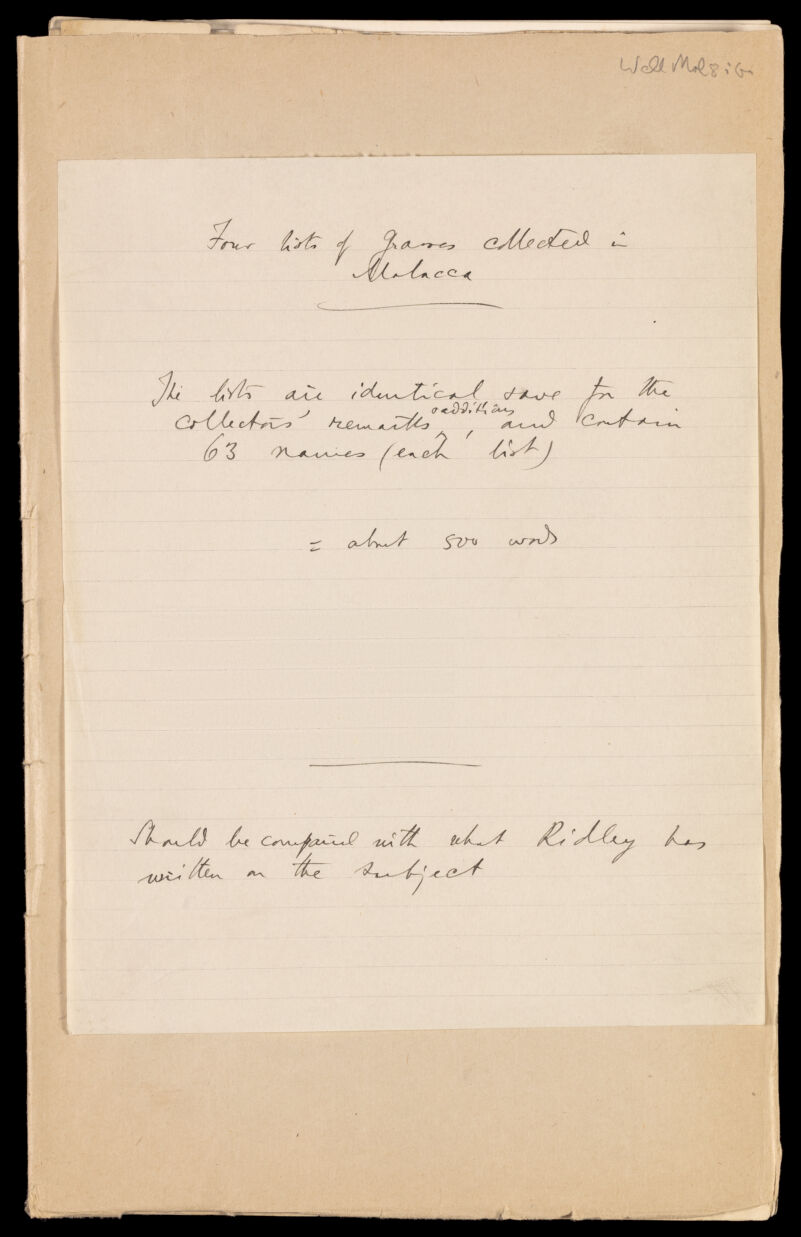 Four lists of grasses collected in
Malacca
The lists are identical save for the
collectors' remarks & additions, and contain
63 names (each list)
= about 500 words
Should be compared with what Ridley has
written on the subject